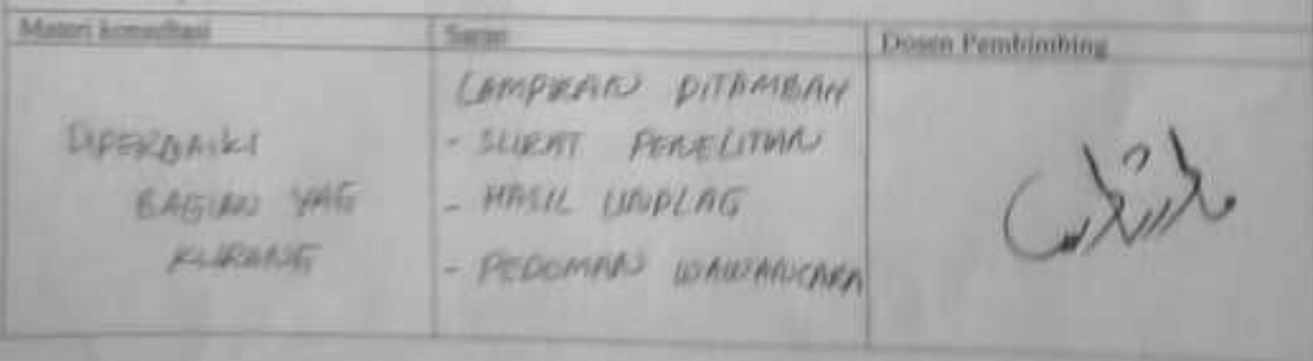 Materi konsultasi
Saran
Dosen Pembimbing
DIPERBAIKI
BAGIAN YAG
KURANG
LAMPIRAN DITAMBAH
- SURAT PENELITIAN
- HASIL UNPLAG
- PEDOMAN WAWANCARA